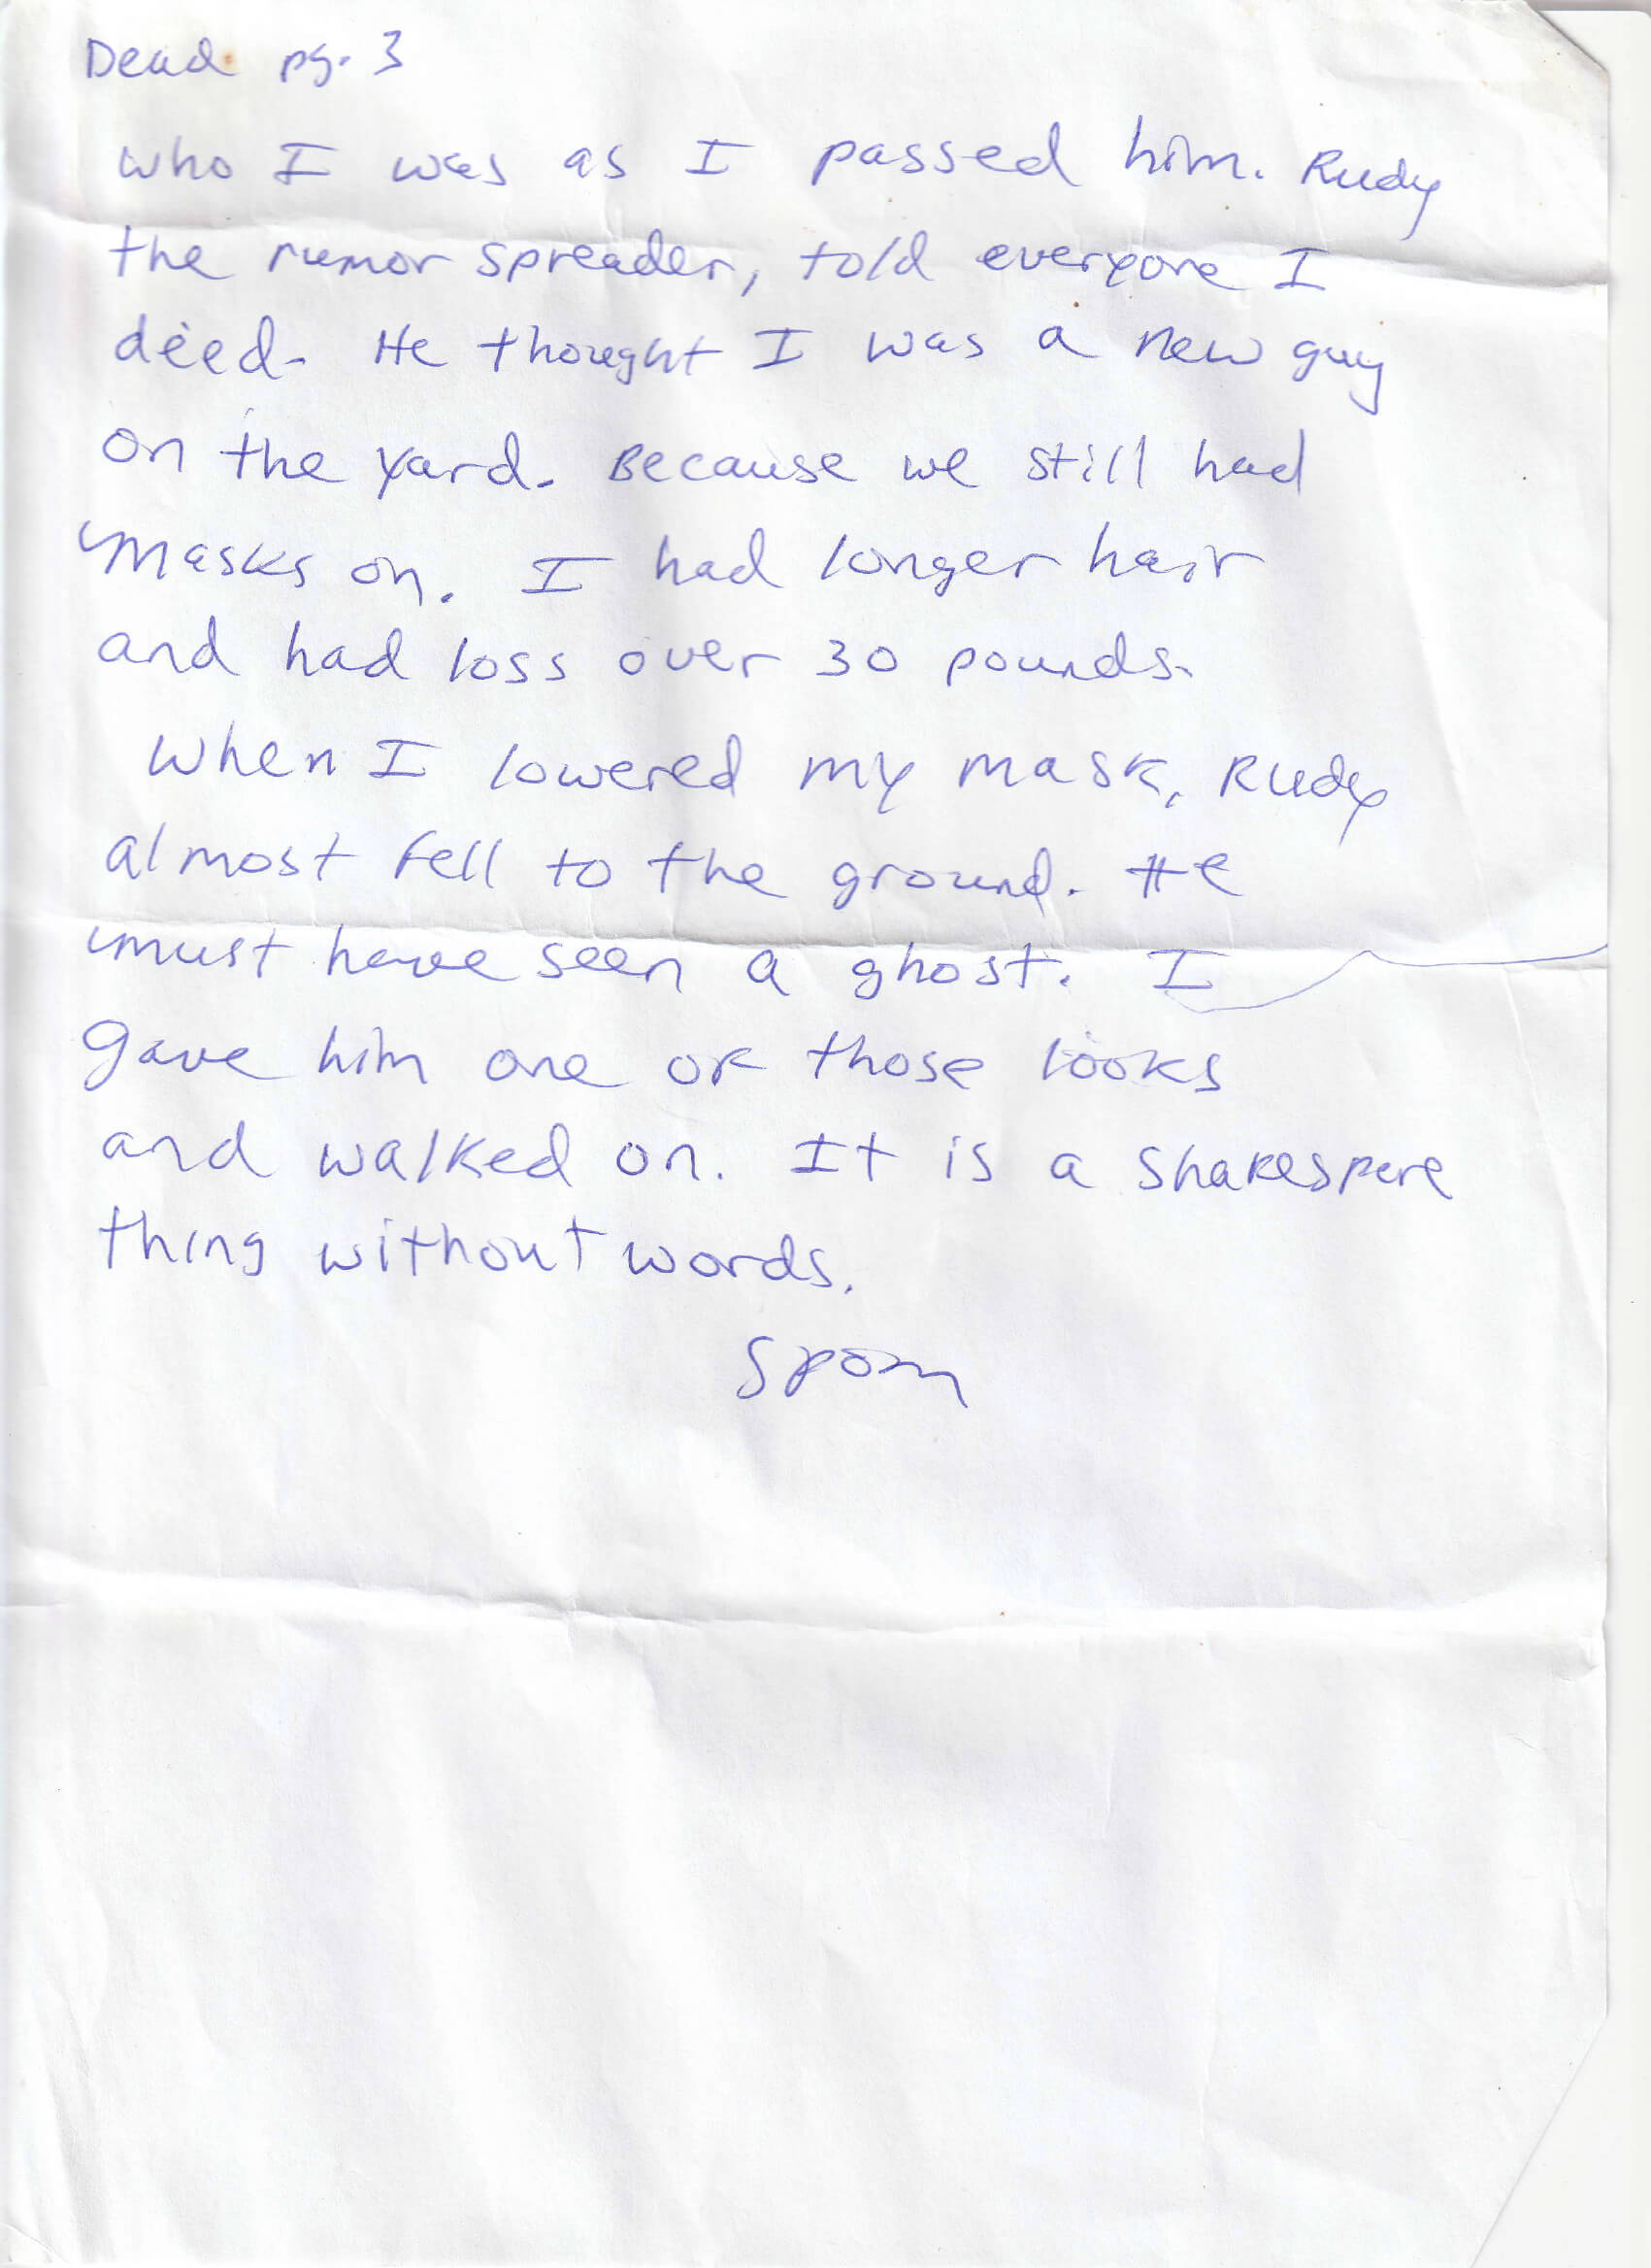 Dead pg. 3
who I was as I passed him. Rudy
the rumor spreader, told everyone I
died. He thought I was a new guy
on the yard. Because we still had
masks on. I had longer hair
and had loss over 30 pounds.
When I lowered my mask, Rudy
almost fell to the ground. He
must have seen a ghost. I
gave him one of those looks
and walked on. It is a Shakespere
thing without words.
Spoon